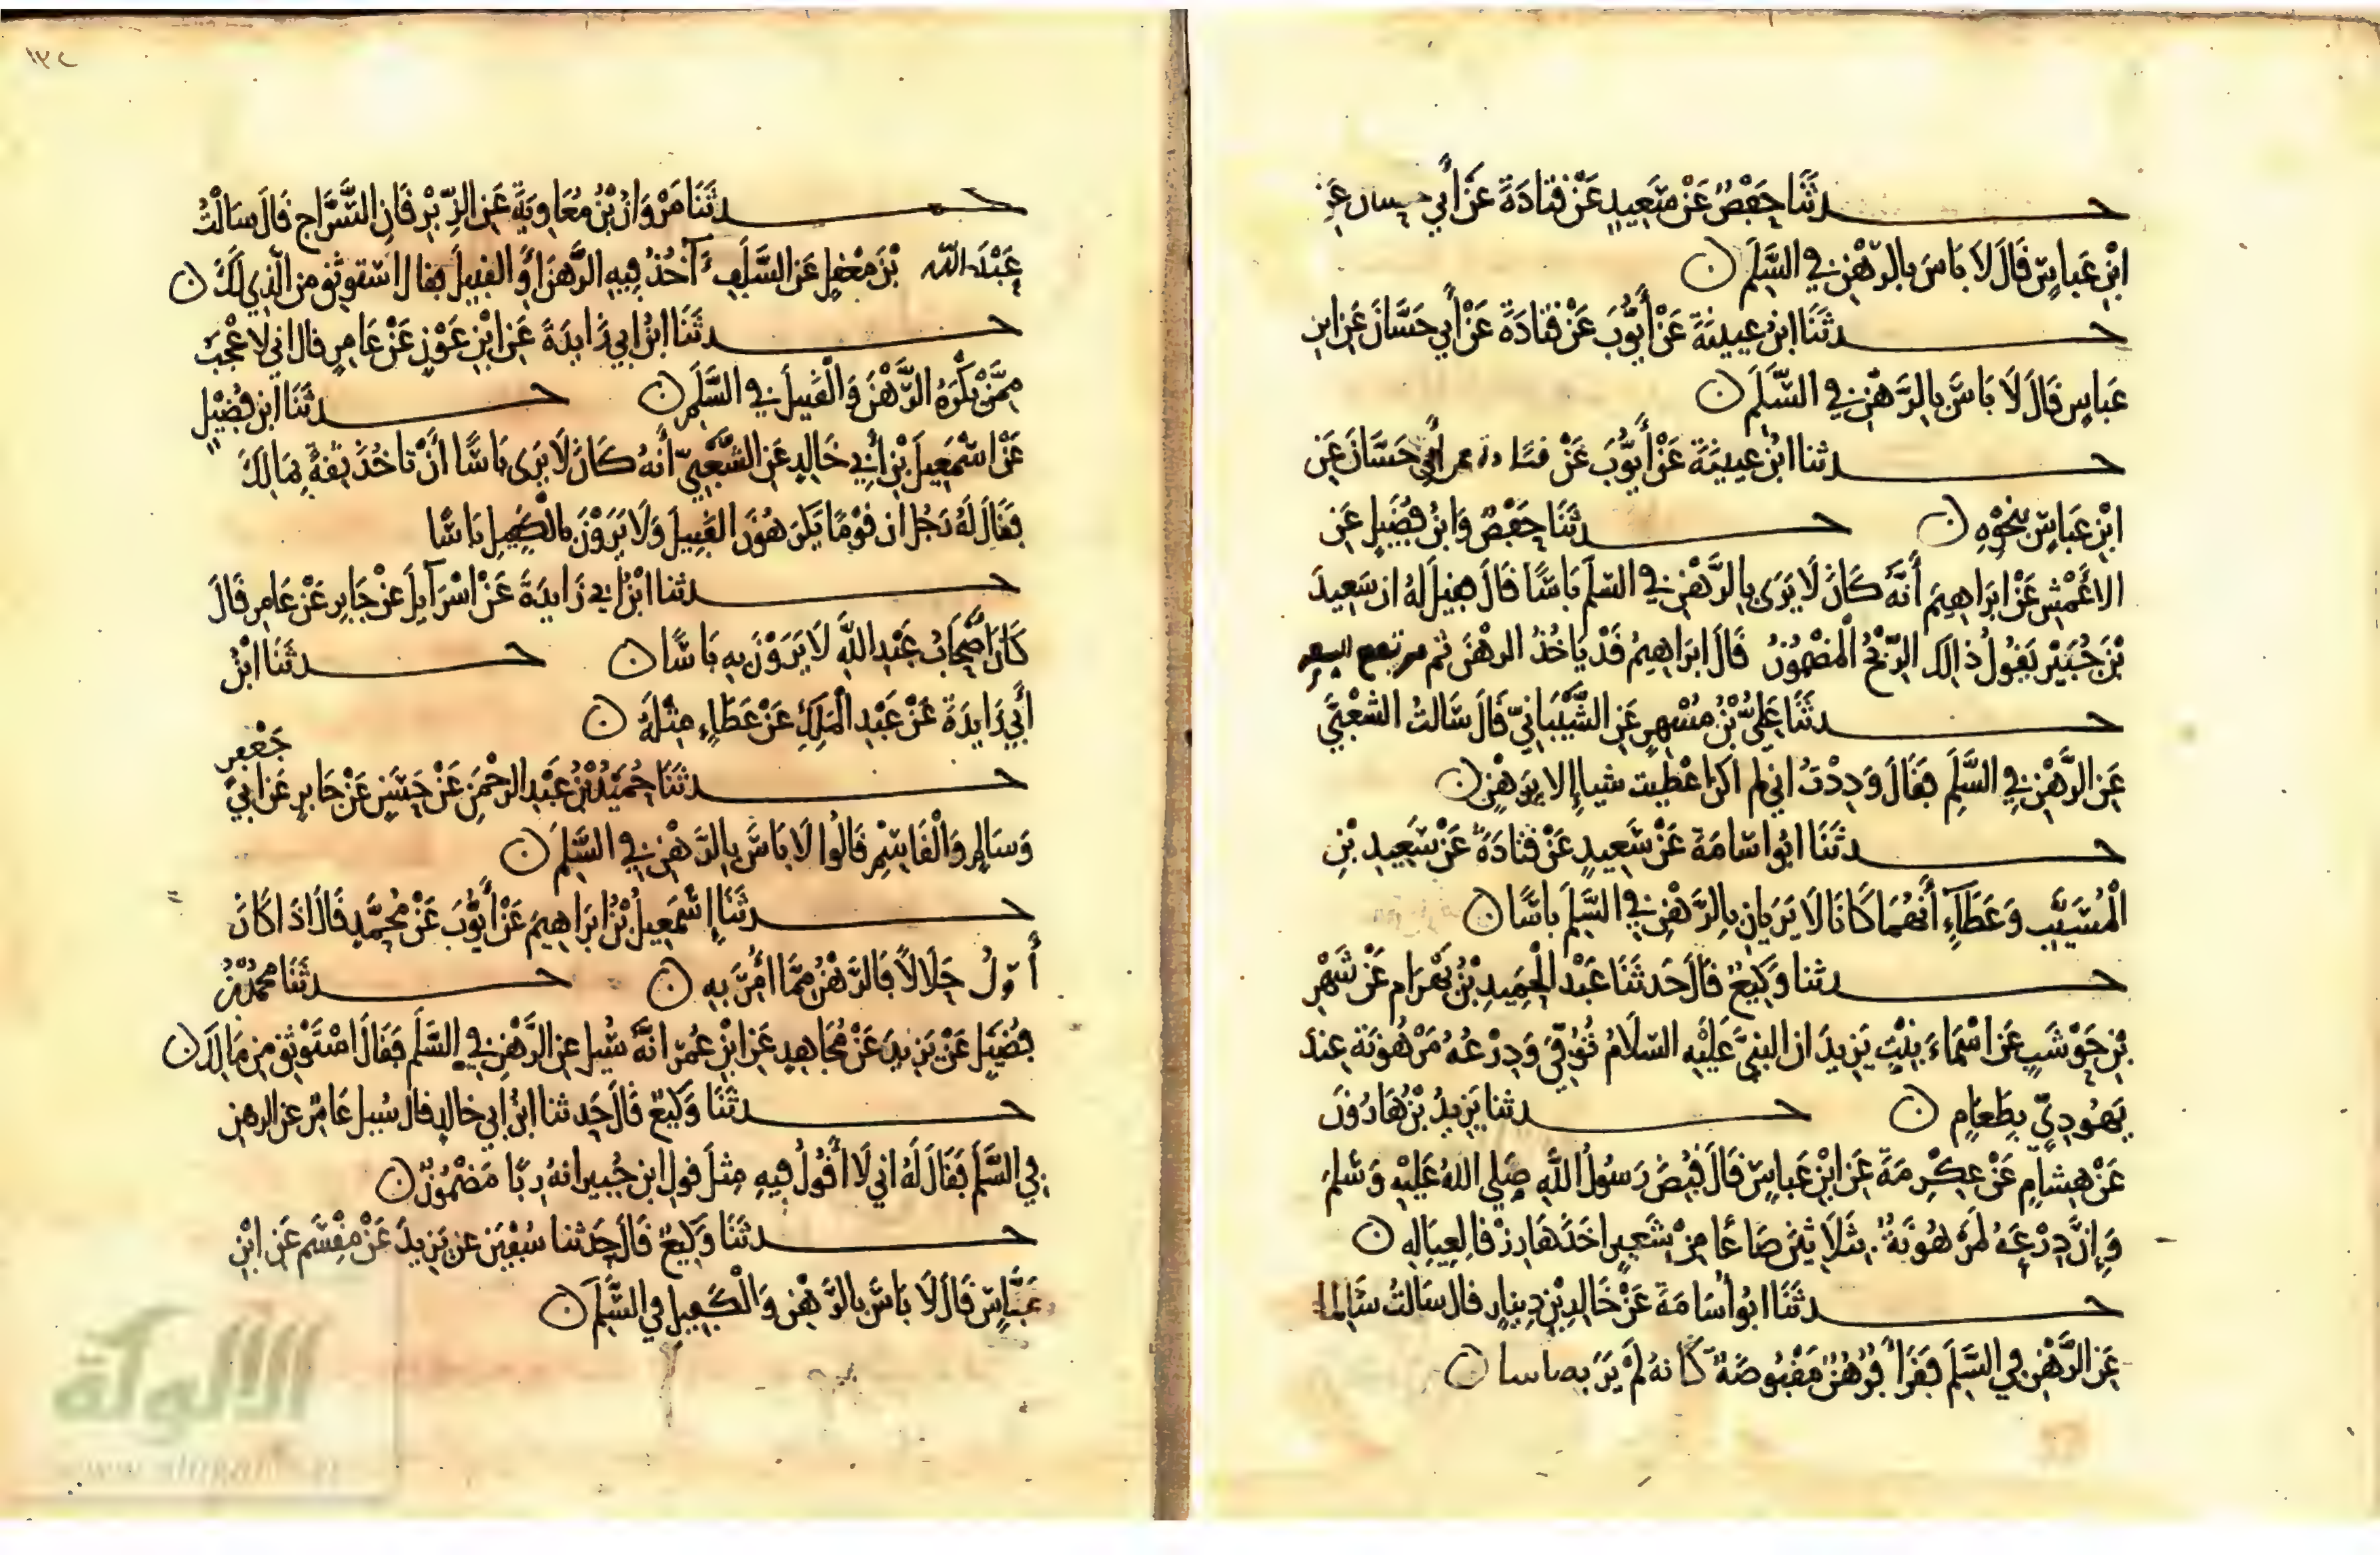 حدثنا حفص عن سعيد عن قتادة عن أبي حسان عن
ابن عباس قال لا باس بالرهن في السلم ن
حدثنا ابن عيينة عن أيوب عن قتادة عن أبي حسان عن ابن
عباس قال لا باس بالرهن في السلم ن
حدثنا ابن عيينة عن أيوب عن قتادة عن أبي حسان عن
ابن عباس بنحوه ن حدثنا حفص وابن فضيل عن
الاعمش عن ابراهيم أنه كان لا يرى بالرهن في السلم باسا قال فقيل له ان سعيد
بن جبير يقول ذلك الربح المضمون قال ابراهيم قد ياخذ الرهن ثم يرتفع السعر
حدثنا علي بن مسهر عن الشيباني قال سالت الشعبي
عن الرهن في السلم فقال وددت اني لم اكن اعطيت شيا إلا برهن ن
حدثنا ابو اسامة عن سعيد عن قتادة عن سعيد بن
المسيب وعطاء أنهما كانا لا يريان بالرهن في السلم باسا ن
حدثنا وكيع قال حدثنا عبد الحميد بن بهرام عن شهر
بن حوشب عن اسماء بنت يزيد ان النبي عليه السلام توفي ودرعه مرهونة عند
يهودي بطعام ن حدثنا يزيد بن هارون
عن هشام عن عكرمة عن ابن عباس قال قبض رسول الله صلى الله عليه وسلم
وإن درعه لمرهونة بثلاثين صاعا من شعير اخذها رزقا لعياله ن
حدثنا ابو أسامة عن خالد بن دينار قال سالت سالما
عن الرهن في السلم فقرأ فرهن مقبوضة كانه لم ير به باسا ن
١٣٢
حدثنا مروان بن معاوية عن الزبرقان السراج قال سالت
عبد الله بن معقل عن السلف آخذ فيه الرهن أو القبيل فقال استوثق من الذي لك ن
حدثنا ابن ابي زايدة عن ابن عون عن عامر قال اني لاعجب
ممن يكره الرهن والقبيل في السلم ن حدثنا ابن فضيل
عن اسمعيل بن أبي خالد عن الشعبي أنه كان لا يرى باسا أن تاخذ ثقة بمالك
فقال له رجل ان قوما يكرهون القبيل ولا يرون بالكفيل باسا
حدثنا ابن ابي زايدة عن اسرآيل عن جابر عن عامر قال
كان أصحاب عبد الله لا يرون به باسا ن حدثنا ابن
أبي زايدة عن عبد الملك عن عطاء مثله ن
حدثنا حميد بن عبد الرحمن عن حسن عن جابر عن ابي جعفر
وسالم والقاسم قالوا لا باس بالرهن في السلم ن
حدثنا إسمعيل بن ابراهيم عن أيوب عن محمد قال اذا كان
أوله حلالا فالرهن مما امر به ن حدثنا محمد بن
فضيل عن يزيد عن مجاهد عن ابن عمر انه سيل عن الرهن في السلم فقال استوثق من مالك ن
حدثنا وكيع قال حدثنا ابن ابي خالد قال سيل عامر عن الرهن
في السلم فقال له اني لا أقول فيه مثل قول ابن جبير انه ربا مضمون ن
حدثنا وكيع قال حدثنا سفين عن يزيد عن مقسم عن ابن
عباس قال لا باس بالرهن والكفيل في السلم ن
الألوكة